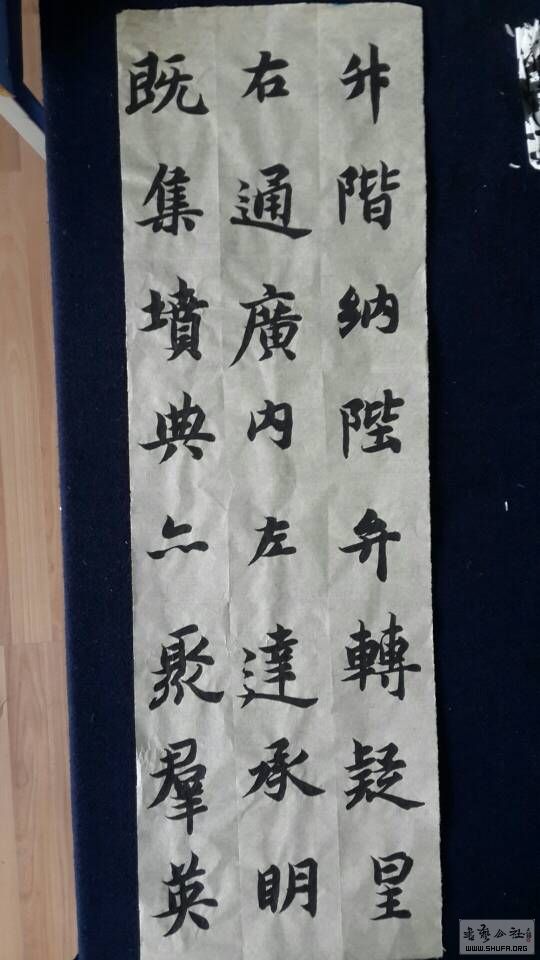 升階納陛弁轉疑星
右通廣內左達承明
既集墳典亦聚羣英
书艺公社
WWW.SHUFA.ORG